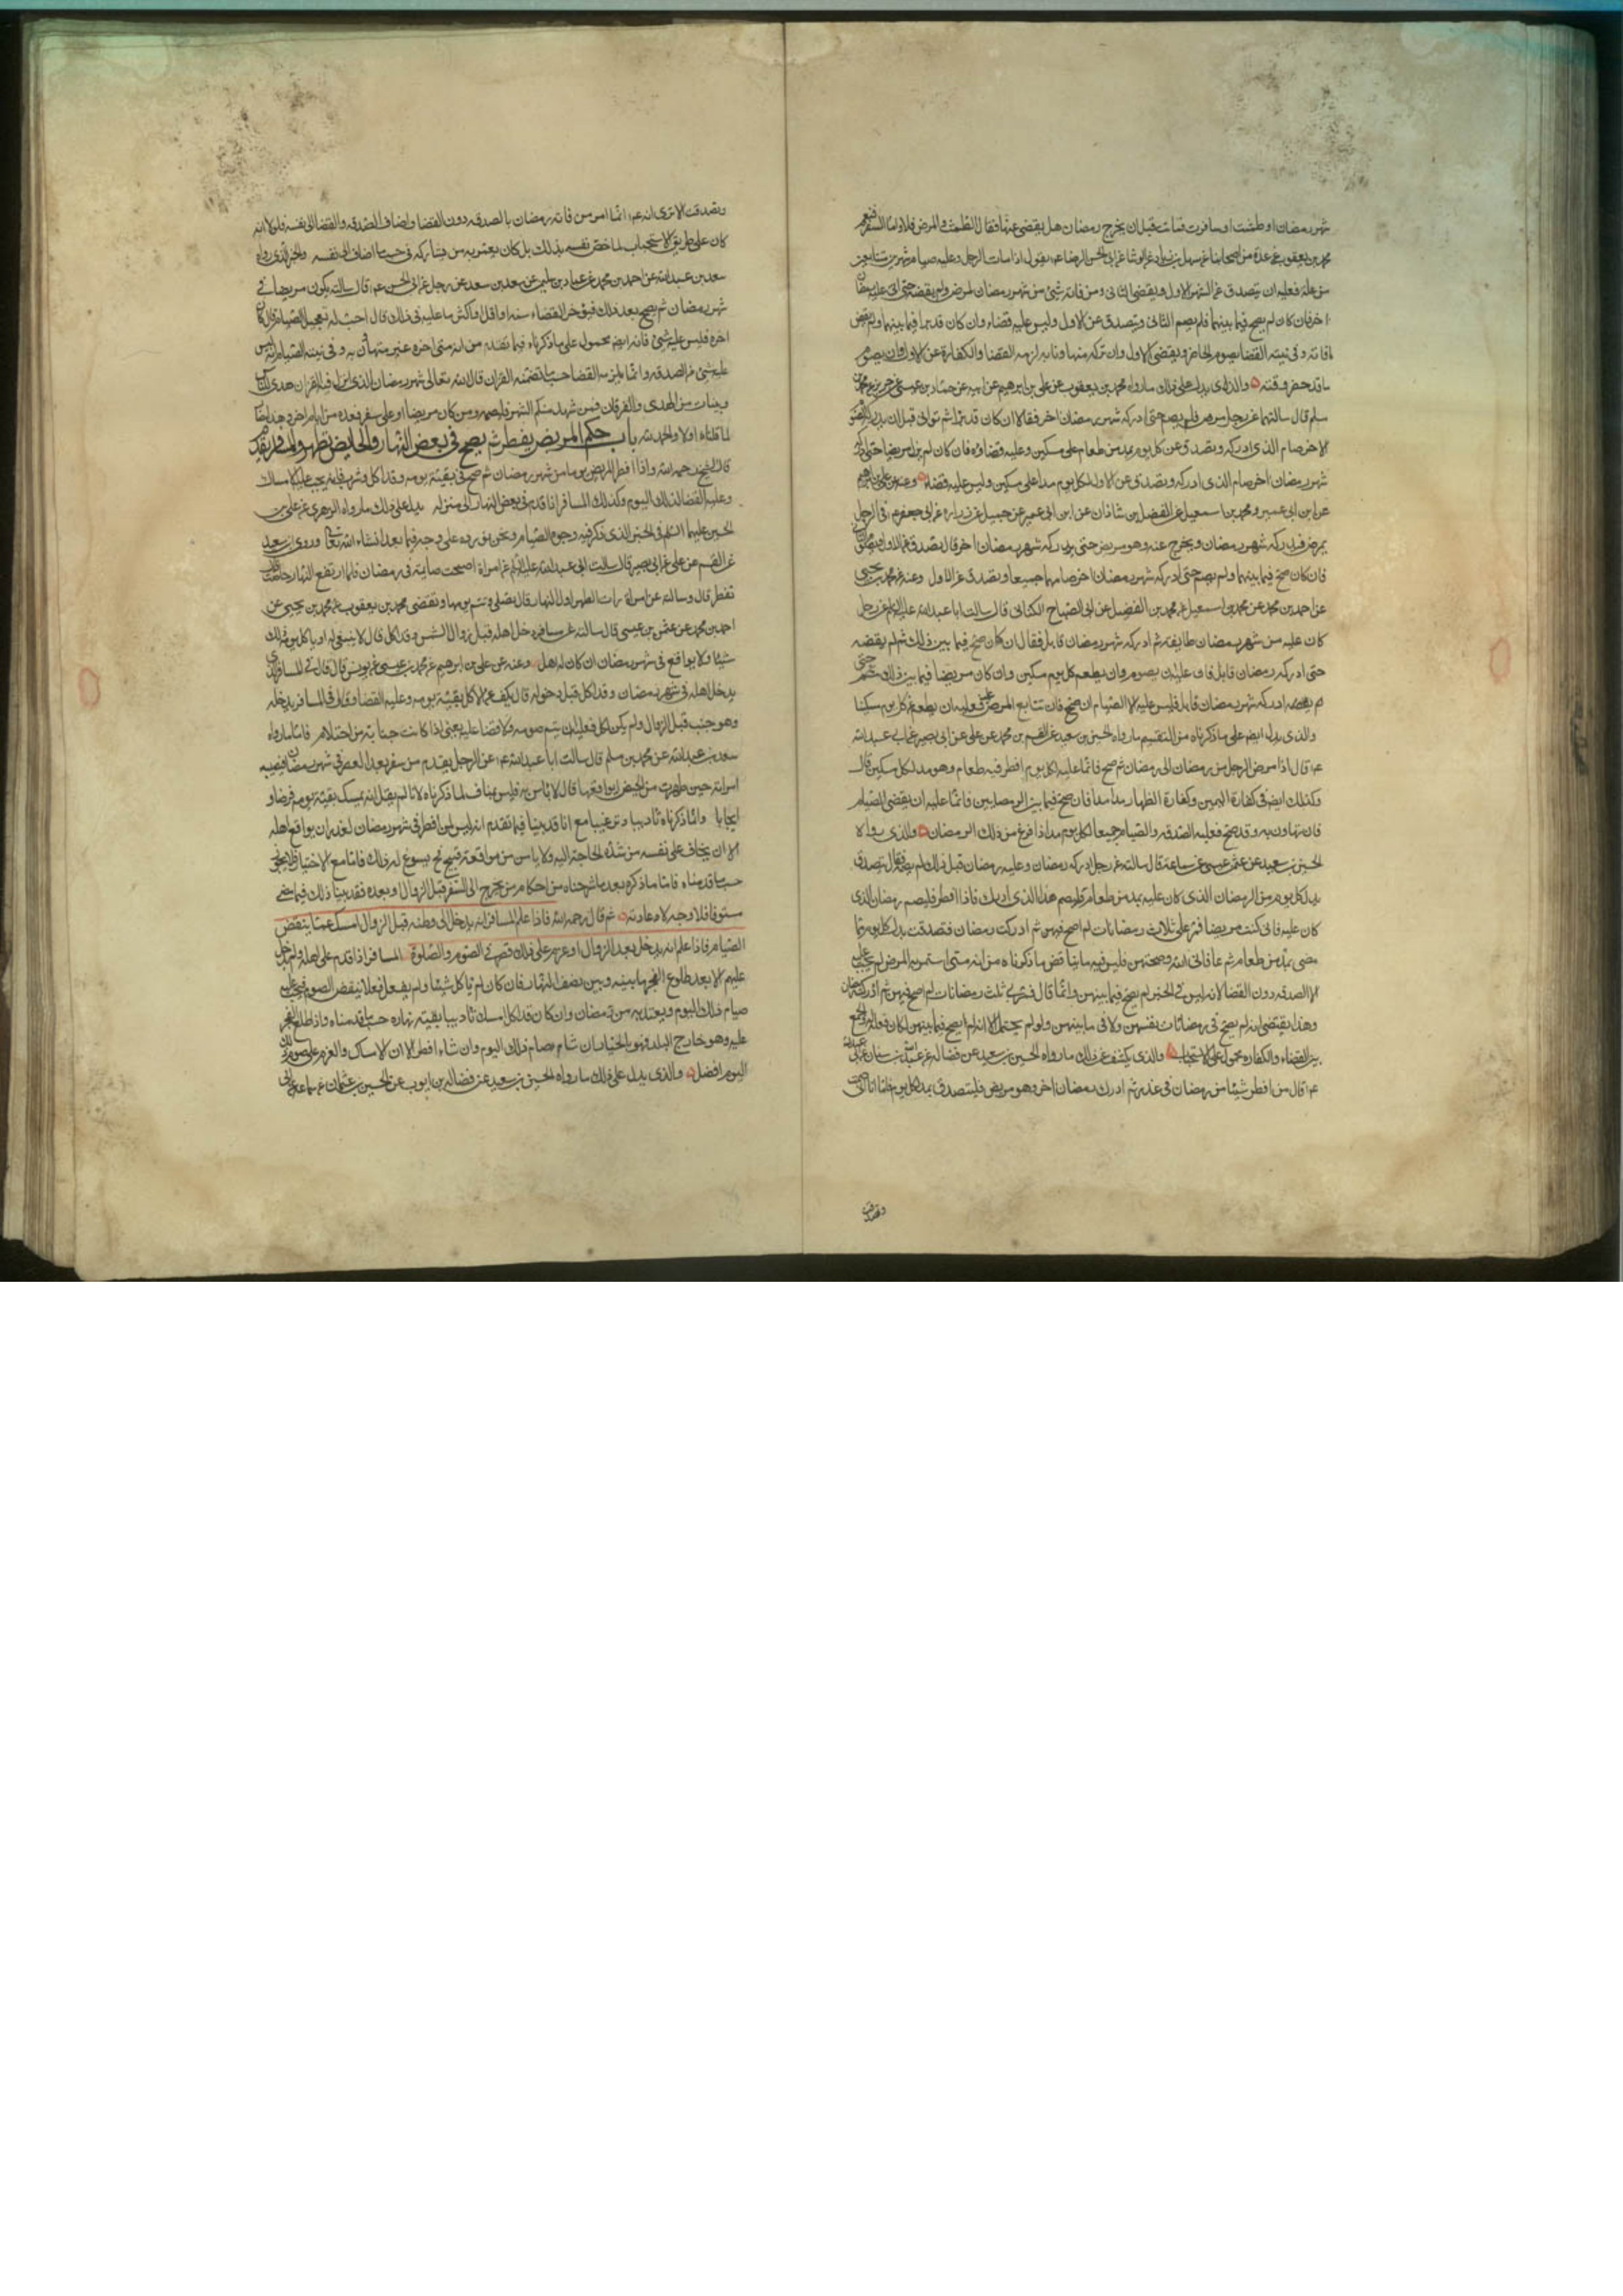 شهر رمضان او طمثت او سافرت فماتت قبل ان يخرج رمضان هل يقضى عنها فقال اما الطمث والمرض فلا واما السفر فنعم
محمد بن يعقوب عن عدة من اصحابنا عن سهل بن زياد عن الوشا عن ابى الحسن الرضا ع يقول اذا مات الرجل وعليه صيام شهرين متتابعين
من علة فعليه ان يتصدق عن الشهر الاول ويقضى الثانى ومن فاته شئ من شهر رمضان لمرض ولم يقضه حتى اتى عليه رمضان
اخر فان كان لم يصح فيما بينهما فليصم الثانى ويتصدق عن الاول وليس عليه قضاء وان كان قد برا فيما بينهما ولم يقض
ما فاته وفى نيته القضا يصوم الحاضر ويقضى الاول وان تركه متهاونا به لزمه القضا والكفارة عن الاول وان يصوم
ما قد حضر وقته والذى يدل على ذلك ما رواه محمد بن يعقوب عن على بن ابرهيم عن ابيه عن حماد بن عيسى عن حريز عن محمد بن
مسلم قال سالتهما عن رجل مرض فلم يصم حتى ادركه شهر رمضان اخر فقالا ان كان قد برا ثم توانى قبل ان يدركه الصوم
الاخر صام الذى ادركه وتصدق عن كل يوم بمد من طعام على مسكين وعليه قضاؤه فان كان لم يزل مريضا حتى ادركه
شهر رمضان اخر صام الذى ادركه وتصدق عن الاول لكل يوم مدا على مسكين وليس عليه قضاء وعنه عن على بن ابرهيم
عن ابن ابى عمير ومحمد بن اسمعيل عن الفضل بن شاذان عن ابن ابى عمير عن جميل عن زرارة عن ابى جعفر ع فى الرجل
يمرض فيدركه شهر رمضان ويخرج عنه وهو مريض حتى يدركه شهر رمضان اخر قال يتصدق عن الاول ويصوم الثانى
فان كان صح فيما بينهما ولم يصم حتى ادركه شهر رمضان اخر صامهما جميعا وتصدق عن الاول وعنه عن محمد بن يحيى
عن احمد بن محمد عن محمد بن اسمعيل عن محمد بن الفضيل عن ابى الصباح الكنانى قال سالت ابا عبد الله عليه السلم عن رجل
كان عليه من شهر رمضان طايفة ثم ادركه شهر رمضان قابل فقال ان كان صح فيما بين ذلك ثم لم يقضه
حتى ادركه رمضان قابل فان عليه ان يصوم وان يطعم كل يوم مسكين وان كان مريضا فيما بين ذلك حتى
ادركه شهر رمضان قابل فليس عليه الا الصيام ان صح فان تتابع المرض عليه فعليه ان يطعم عن كل يوم مسكينا
والذى يدل ايضا على ما ذكرناه من التقسيم ما رواه الحسين بن سعيد عن القسم بن محمد عن على عن ابى بصير عن ابى عبد الله
ع قال اذا مرض الرجل من رمضان الى رمضان ثم صح فانما عليه لكل يوم افطر فيه طعام وهو مد لكل مسكين قال
وكذلك ايضا فى كفارة اليمين وكفارة الظهار مدا مدا فان صح فيما بين الرمضانين فانما عليه ان يقضى الصيام
فان تهاون به وقد صح فعليه الصدقه والصيام جميعا لكل يوم مد اذا فرغ من ذلك الرمضان والذى رواه
الحسين بن سعيد عن عثمن بن عيسى عن سماعة قال سالته عن رجل ادركه رمضان وعليه رمضان قبل ذلك لم يصمه فقال يتصدق
بدل كل يوم من الرمضان الذى كان عليه بمد من طعام وليصم هذا الذى ادرك فاذا افطر فليصم رمضان الذى
كان عليه فانى كنت مريضا فمر على ثلاث رمضانات لم اصح فيهن ثم ادركت رمضان فتصدقت بدل كل يوم مما
مضى بمد من طعام ثم عافانى الله وصمتهن فليس فيه ما يناقض ما ذكرناه من انه متى استمر به المرض لم يجب عليه
الا الصدقه دون القضا لانه ليس فى الخبر لم يصح فيما بينهن وانما قال فمر بى ثلث رمضانات لم اصح فيهن ثم ادركت رمضان
وهذا يقتضى انه لم يصح فى رمضانات بنفسهن ولا فى ما بينهن ولو لم يحتمل الا انه لم يصح فيما بينهن لكان قوله الجمع
بين القضاء والكفاره محمول على الاستحباب والذى يكشف عن ذلك ما رواه الحسين بن سعيد عن فضالة عن عبد الله بن سنان عن ابى عبد الله
ع قال من افطر شيئا من رمضان فى عذر ثم ادرك رمضان اخر وهو مريض فليتصدق بمد لكل يوم فاما انا فانى صمت
وتصدقت
وتصدقت الا ترى انه ع انما امر من فاته رمضان بالصدقه دون القضا واضاف الصدقه والقضا الى نفسه فلولا انه
كان على طريق الاستحباب لما خص نفسه بذلك بل كان يعم به من يشاركه فى حسب ما اضاف الى نفسه والخبر الذى رواه
سعد بن عبد الله عن احمد بن محمد عن عباد بن سليمن عن سعد بن سعد عن رجل عن ابى الحسن ع قال سالته يكون مريضا فى
شهر رمضان ثم يصح بعد ذلك فيؤخر القضاء سنه او اقل او اكثر ما عليه فى ذلك قال احب له تعجيل الصيام فان كان
اخره فليس عليه شئ فانه ايضا محمول على ما ذكرناه فيما تقدم من انه متى اخره غير متهاون به وفى نيته الصيام فانه ليس
عليه شئ من الصدقه وانما يلزمه القضا حسب ما تضمنه القران قال الله تعالى شهر رمضان الذى انزل فيه القران هدى للناس
وبينات من الهدى والفرقان فمن شهد منكم الشهر فليصمه ومن كان مريضا او على سفر فعدة من ايام اخر وهذا
لما قلناه اولا والحمد لله باب حكم المريض يفطر ثم يصح فى بعض النهار والحايض تطهر والمسافر يقدم
قال الشيخ رحمه الله واذا افطر المريض يوما من شهر رمضان ثم صح فى بقية يومه وقد اكل وشرب فانه يجب عليه الامساك
وعليه القضا لذلك اليوم وكذلك المسافر اذا قدم فى بعض النهار الى منزله يدل على ذلك ما رواه الزهرى عن على بن
الحسين عليهما السلم فى الخبر الذى ذكر فيه وجوه الصيام ونحن نورده على وجهه فيما بعد انشاء الله تعالى وروى الحسين بن سعيد
عن القسم عن على عن ابى بصير قال سالت ابا عبد الله عليه السلم عن امراة اصبحت صايمة فى رمضان فلما ارتفع النهار حاضت قال
تفطر قال وسالته عن امراة رات الطهر اول النهار قال تصلى وتتم يومها وتقضى محمد بن يعقوب عن محمد بن يحيى عن
احمد بن محمد عن عثمن بن عيسى قال سالته عن مسافر دخل اهله قبل زوال الشمس وقد اكل قال لا ينبغى له ان ياكل يومه ذلك
شيئا ولا يواقع فى شهر رمضان ان كان له اهل وعنه عن على بن ابرهيم عن محمد بن عيسى عن يونس قال قال فى المسافر الذى
يدخل اهله فى شهر رمضان وقد اكل قبل دخوله قال يكف عن الاكل بقية يومه وعليه القضا وقال فى المسافر يدخل اهله
وهو جنب قبل الزوال ولم يكن اكل فعليه ان يتم صومه ولا قضا عليه يعنى اذا كانت جنابته من احتلام فاما ما رواه
سعد بن عبد الله عن محمد بن مسلم قال سالت ابا عبد الله ع عن الرجل يقدم من سفر بعد العصر فى شهر رمضان فيصيب
امراته حين طهرت من الحيض ايواقعها قال لا باس به فليس ينافى لما ذكرناه لانا لم نقل انه يمسك بقية يومه فرضا و
ايجابا وانما ذكرناه تاديبا وترغيبا مع انا قد بينا فيما تقدم انه ليس لمن افطر فى شهر رمضان لعذر ان يواقع اهله
الا ان يخاف على نفسه من شدة الحاجة اليه ولا يامن من مواقعة قبيح فح يسوغ له ذلك فاما مع الاختيار فلا يجوز
حسب ما قدمناه فاما ما ذكره بعد ما شرحناه من احكام من يخرج الى السفر قبل الزوال او بعده فقد بينا ذلك فيما مضى
مستوفا فلا وجه لاعادته ثم قال رحمه الله فاذا علم المسافر انه يدخل الى وطنه قبل الزوال امسك عما ينقض
الصيام فاذا علم انه يدخل بعد الزوال او عزم على ذلك قصر فى الصوم والصلوة المسافر اذا قدم على اهله ولم يدخل
عليهم الا بعد طلوع الفجر ما بينه وبين نصف النهار فان كان لم ياكل شيئا ولم يفعل فعلا ينقض الصوم فيجب عليه
صيام ذلك اليوم ويعتد به من رمضان وان كان قد اكل امسك تاديبا بقية نهاره حسب ما قدمناه واذا طلع الفجر
عليه وهو خارج البلد فهو بالخيار ان شاء صام ذلك اليوم وان شاء افطر الا ان الامساك والعزم على صوم ذلك
اليوم افضل والذى يدل على ذلك ما رواه الحسين بن سعيد عن فضاله بن ايوب عن الحسين بن عثمان عن سماعة